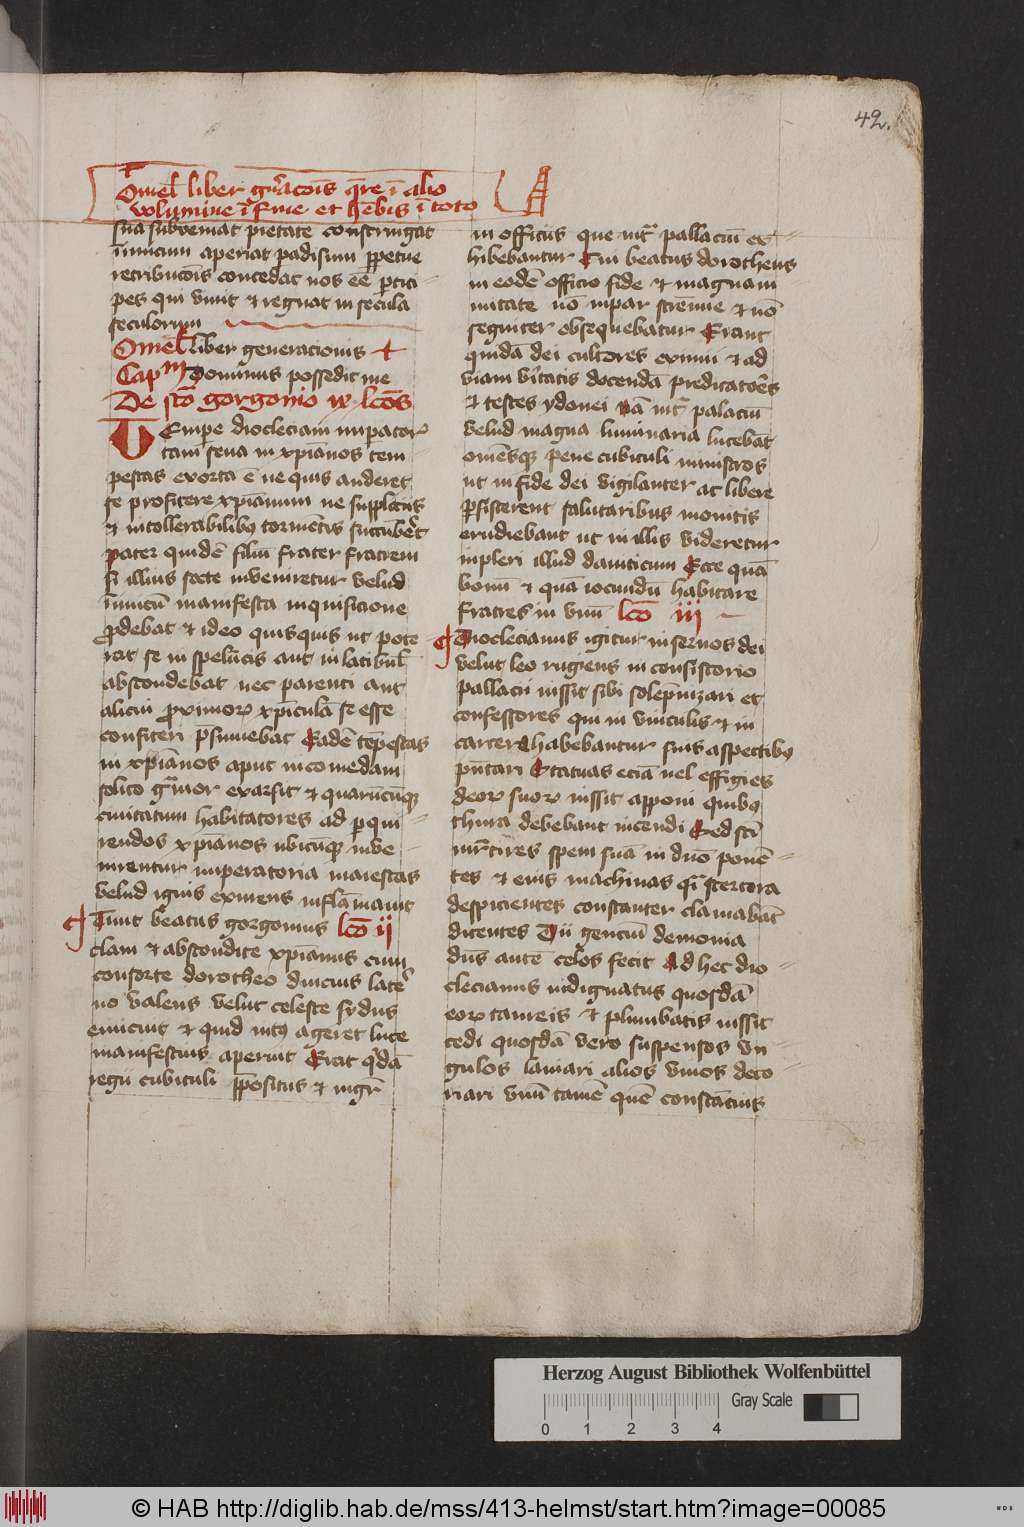 42.
Omel liber gn̄acōis q̄re ī alio
volumine ī fine et hēbis ī toto
A
suā subveniat pietate constringat
inimicum aperiat padisum ꝑpetue
retribucōis concedat nos eē ꝑtici
pes qui vivit et regnat in secula
seculorum
Omel liber generacionis
Capm Dominus possedit me
De scō gorgonio lcōs
Tempe diocleciani impatoꝝ
tam seua in xpianos tem
pestas exorta ē ne quis auderet
se profitere xpianum ne supplicijs
et intollerabilibꝫ tormētis succūbet
pater quidē filiū frater fratrem
si illius secte inveniretur velud
inimicū manifesta inquisicione
ꝓdebat et ideo quisquis ut pote
rat se in spelūcis aut in latibul
abscondebat nec parenti aut
alicui ꝓximoꝝ xpicolā se esse
confiteri p̄sumebat Eadē tēpestas
in xpianos aput nicomediam
solito gͣuior exarsit et quarūcūqꝫ
ciuitatum habitatores ad ꝑqui
rendos xpianos ubicūqꝫ inve
nirentur imperatoria maiestas
velud ignis eximens inflāmauit
Tunc beatus gorgonius lcō ii
clam et abscondite xpianus cum
consorte dorotheo diucius latē
no valens velut celeste sydus
emicuit et quid intꝰ ageret luce
manifestius aperuit Erat qͥdā
regii cubiculi p̄positus et mgr̄
in officiis que intͣ pallaciū ex
hibebantur Cui beatus dorotheus
in eodē officio fide et magnani
mitate nō inpar strennue et nō
segniter obsequebatur Erant
quidā dei cultores eximii et ad
viam vitatis docendā predicatoēs
et testes ydonei nā intͣ palaciū
velud magna luminaria lucebāt
omēsqꝫ pene cubiculi ministros
ut in fide dei vigilanter ac libere
ꝑsisterent salutaribus monitis
erudiebant ut in illis videretur
inpleri illud dauiticum Ecce quā
bonū et quā iocundū habitare
fratres in vnū lcō iii
Dioclecianus igitur in seruos dei
velut leo rugiens in consistorio
pallacii iussit sibi solēpnizari et
confessores qui in vinculis et in
carcere habebantur suis aspectibꝫ
pn̄tari Statuas eciā vel effigies
deoꝝ suoꝝ iussit apponi quibꝫ
thura debebant incendi Sed sci
mr̄tires spem suā in dnō ponē
tes et eius machinas qͣ stercora
despicientes constanter clamabāt
dicentes Dii genciū demonia
dn̄s autē celos fecit Ad hec dio
clecianus indignatus quosdā
eoꝝ taureis et plumbatis iussit
cedi quosdā vero suspensos vn
gulos laniari alios vinos deco
riari vnū tamē quē constācius
Herzog August Bibliothek Wolfenbüttel
Gray Scale
0 1 2 3 4
© HAB http://diglib.hab.de/mss/413-helmst/start.htm?image=00085
WDB